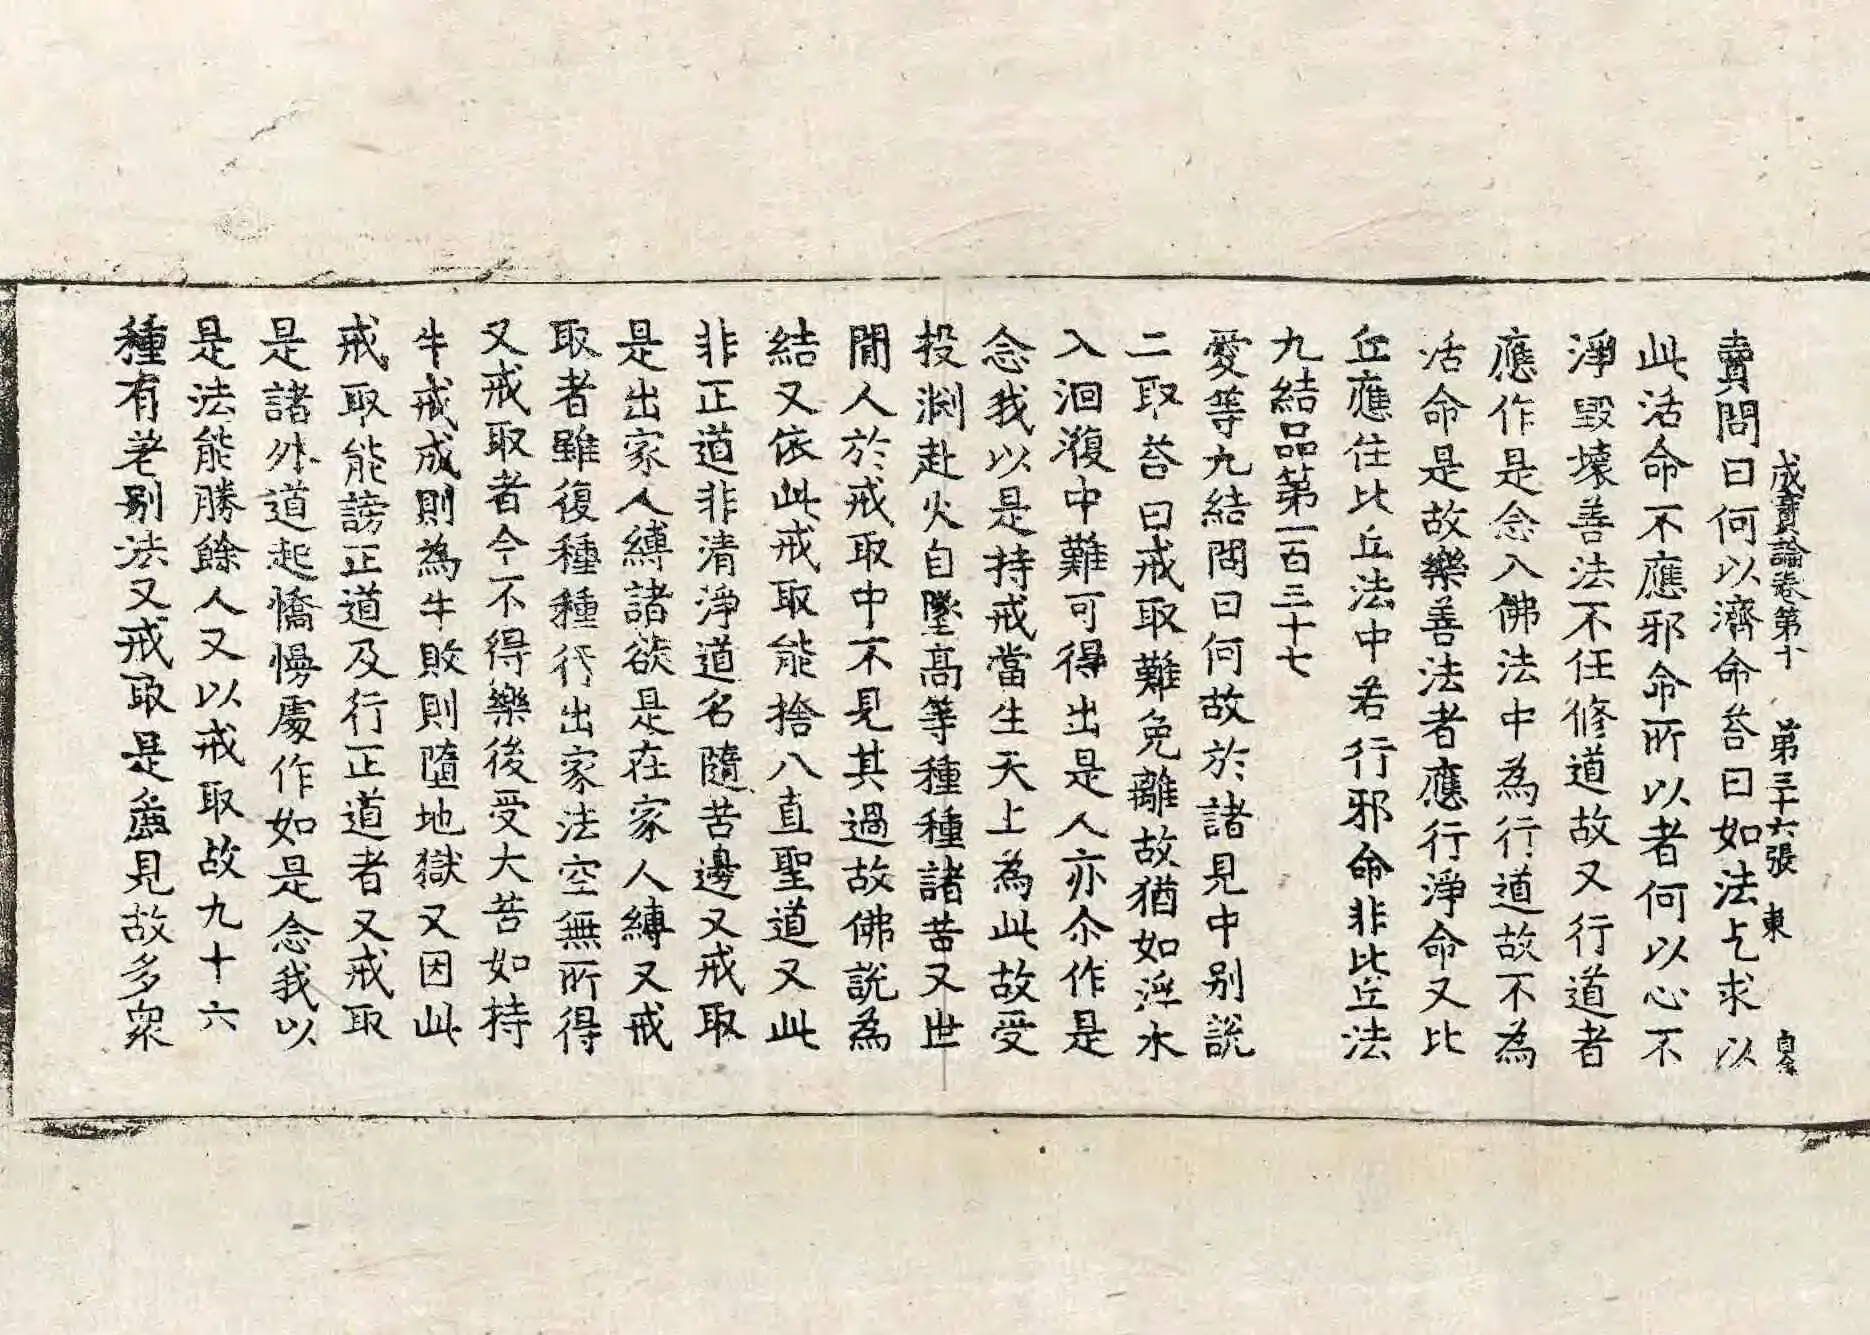 成實論卷第十 第三十六張 東
賣問曰何以濟命荅曰如法乞求以
此活命不應邪命所以者何以心不
淨毀壞善法不任修道故又行道者
應作是念入佛法中為行道故不為
活命是故樂善法者應行淨命又比
丘應住比丘法中若行邪命非比丘法
九結品第一百三十七
愛等九結問曰何故於諸見中別說
二取荅曰戒取難免離故猶如洄水
入洄澓中難可得出是人亦尒作是
念我以是持戒當生天上為此故受
投渕赴火自墜高等種種諸苦又世
閒人於戒取中不見其過故佛說為
結又依此戒取能捨八直聖道又此
非正道非清淨道名隨苦邊又戒取
是出家人縛諸欲是在家人縛又戒
取者雖復種種行出家法空無所得
又戒取者今不得樂後受大苦如持
牛戒成則為牛敗則墮地獄又因此
戒取能謗正道及行正道者又戒取
是諸外道起憍慢處作如是念我以
是法能勝餘人又以戒取故九十六
種有差別法又戒取是麁見故多衆